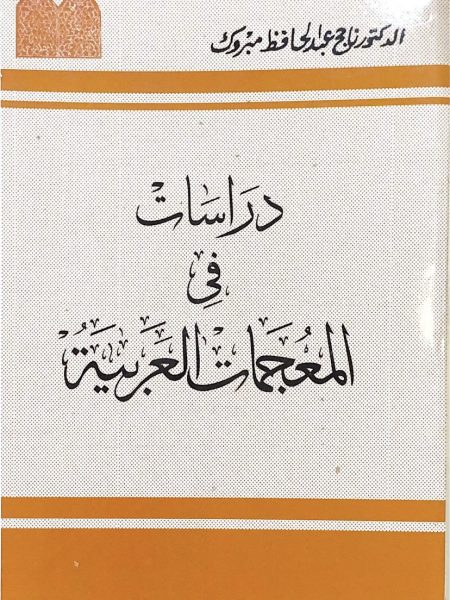 الدكتور ناجح عبد الحافظ مبروك
دراسات
في
المعجمات العربية